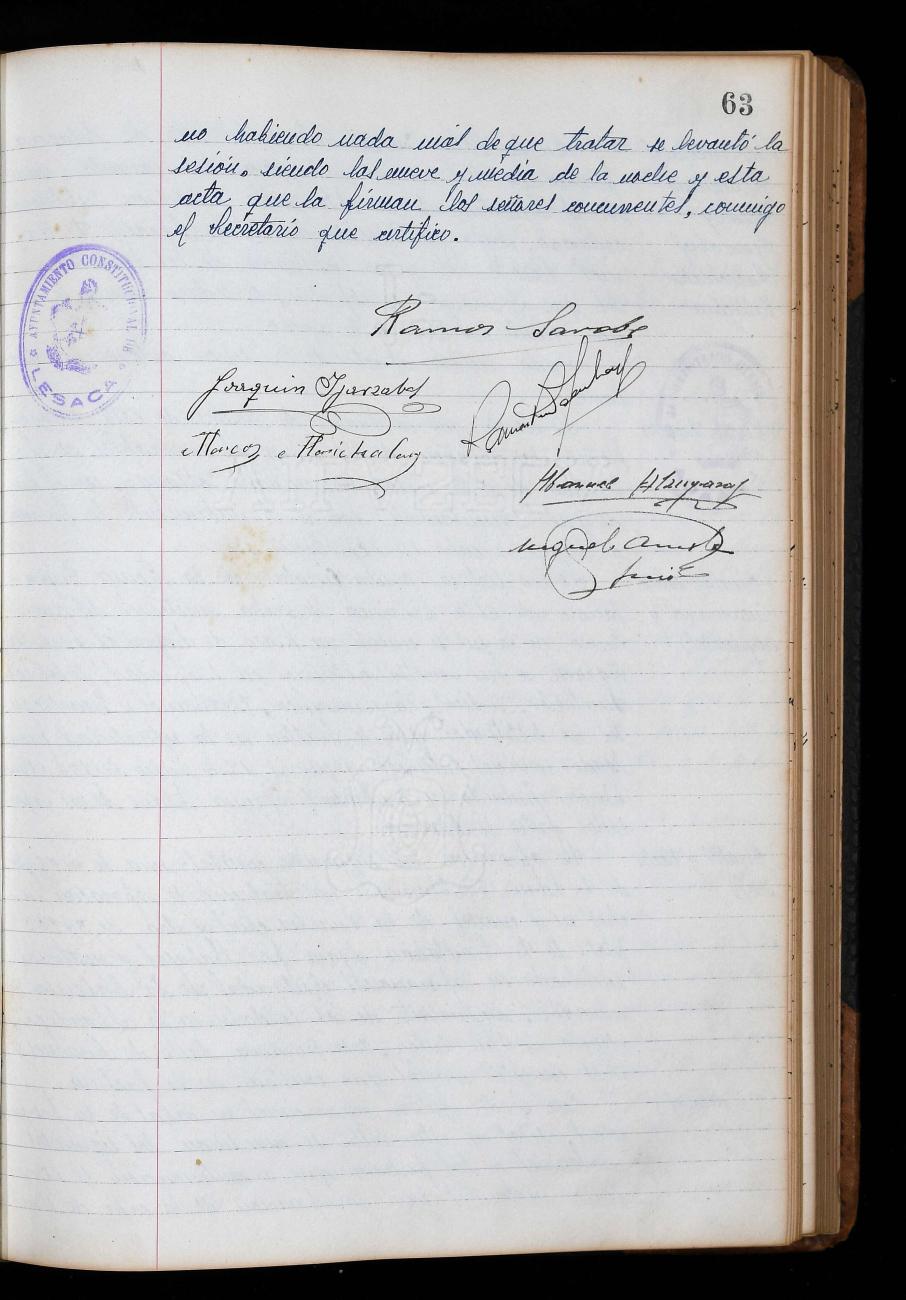 63
no habiendo nada más de que tratar se levantó la
sesión, siendo las nueve y media de la noche y esta
acta, que la firman los señores concurrentes, conmigo
el Secretario que certifico.
AYUNTAMIENTO CONSTITUCIONAL DE
LESACA
Ramos Sarobe
Joaquin Igarzabal
Marcos Marichalar
Manuel
Miguel